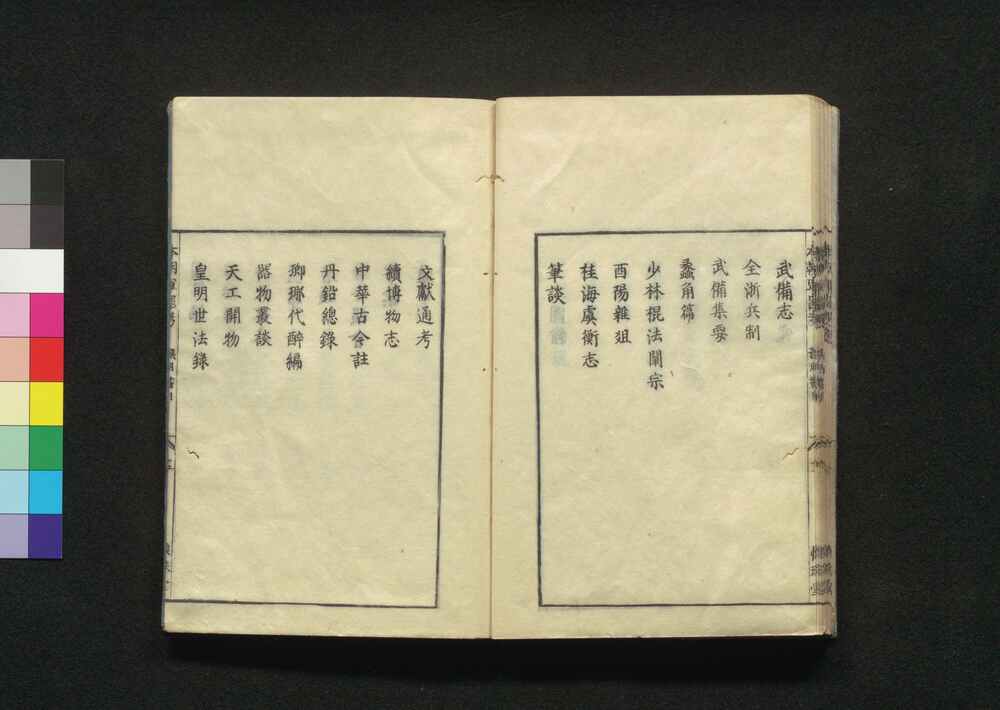 武備志
全浙兵制
武備集要
蠡角篇
少林棍法闡宗
酉陽雜俎
桂海虞衡志
筆談
文獻通考
續博物志
中華古今註
丹鉛總錄
瑯琊代醉編
器物叢談
天工開物
皇明世法錄